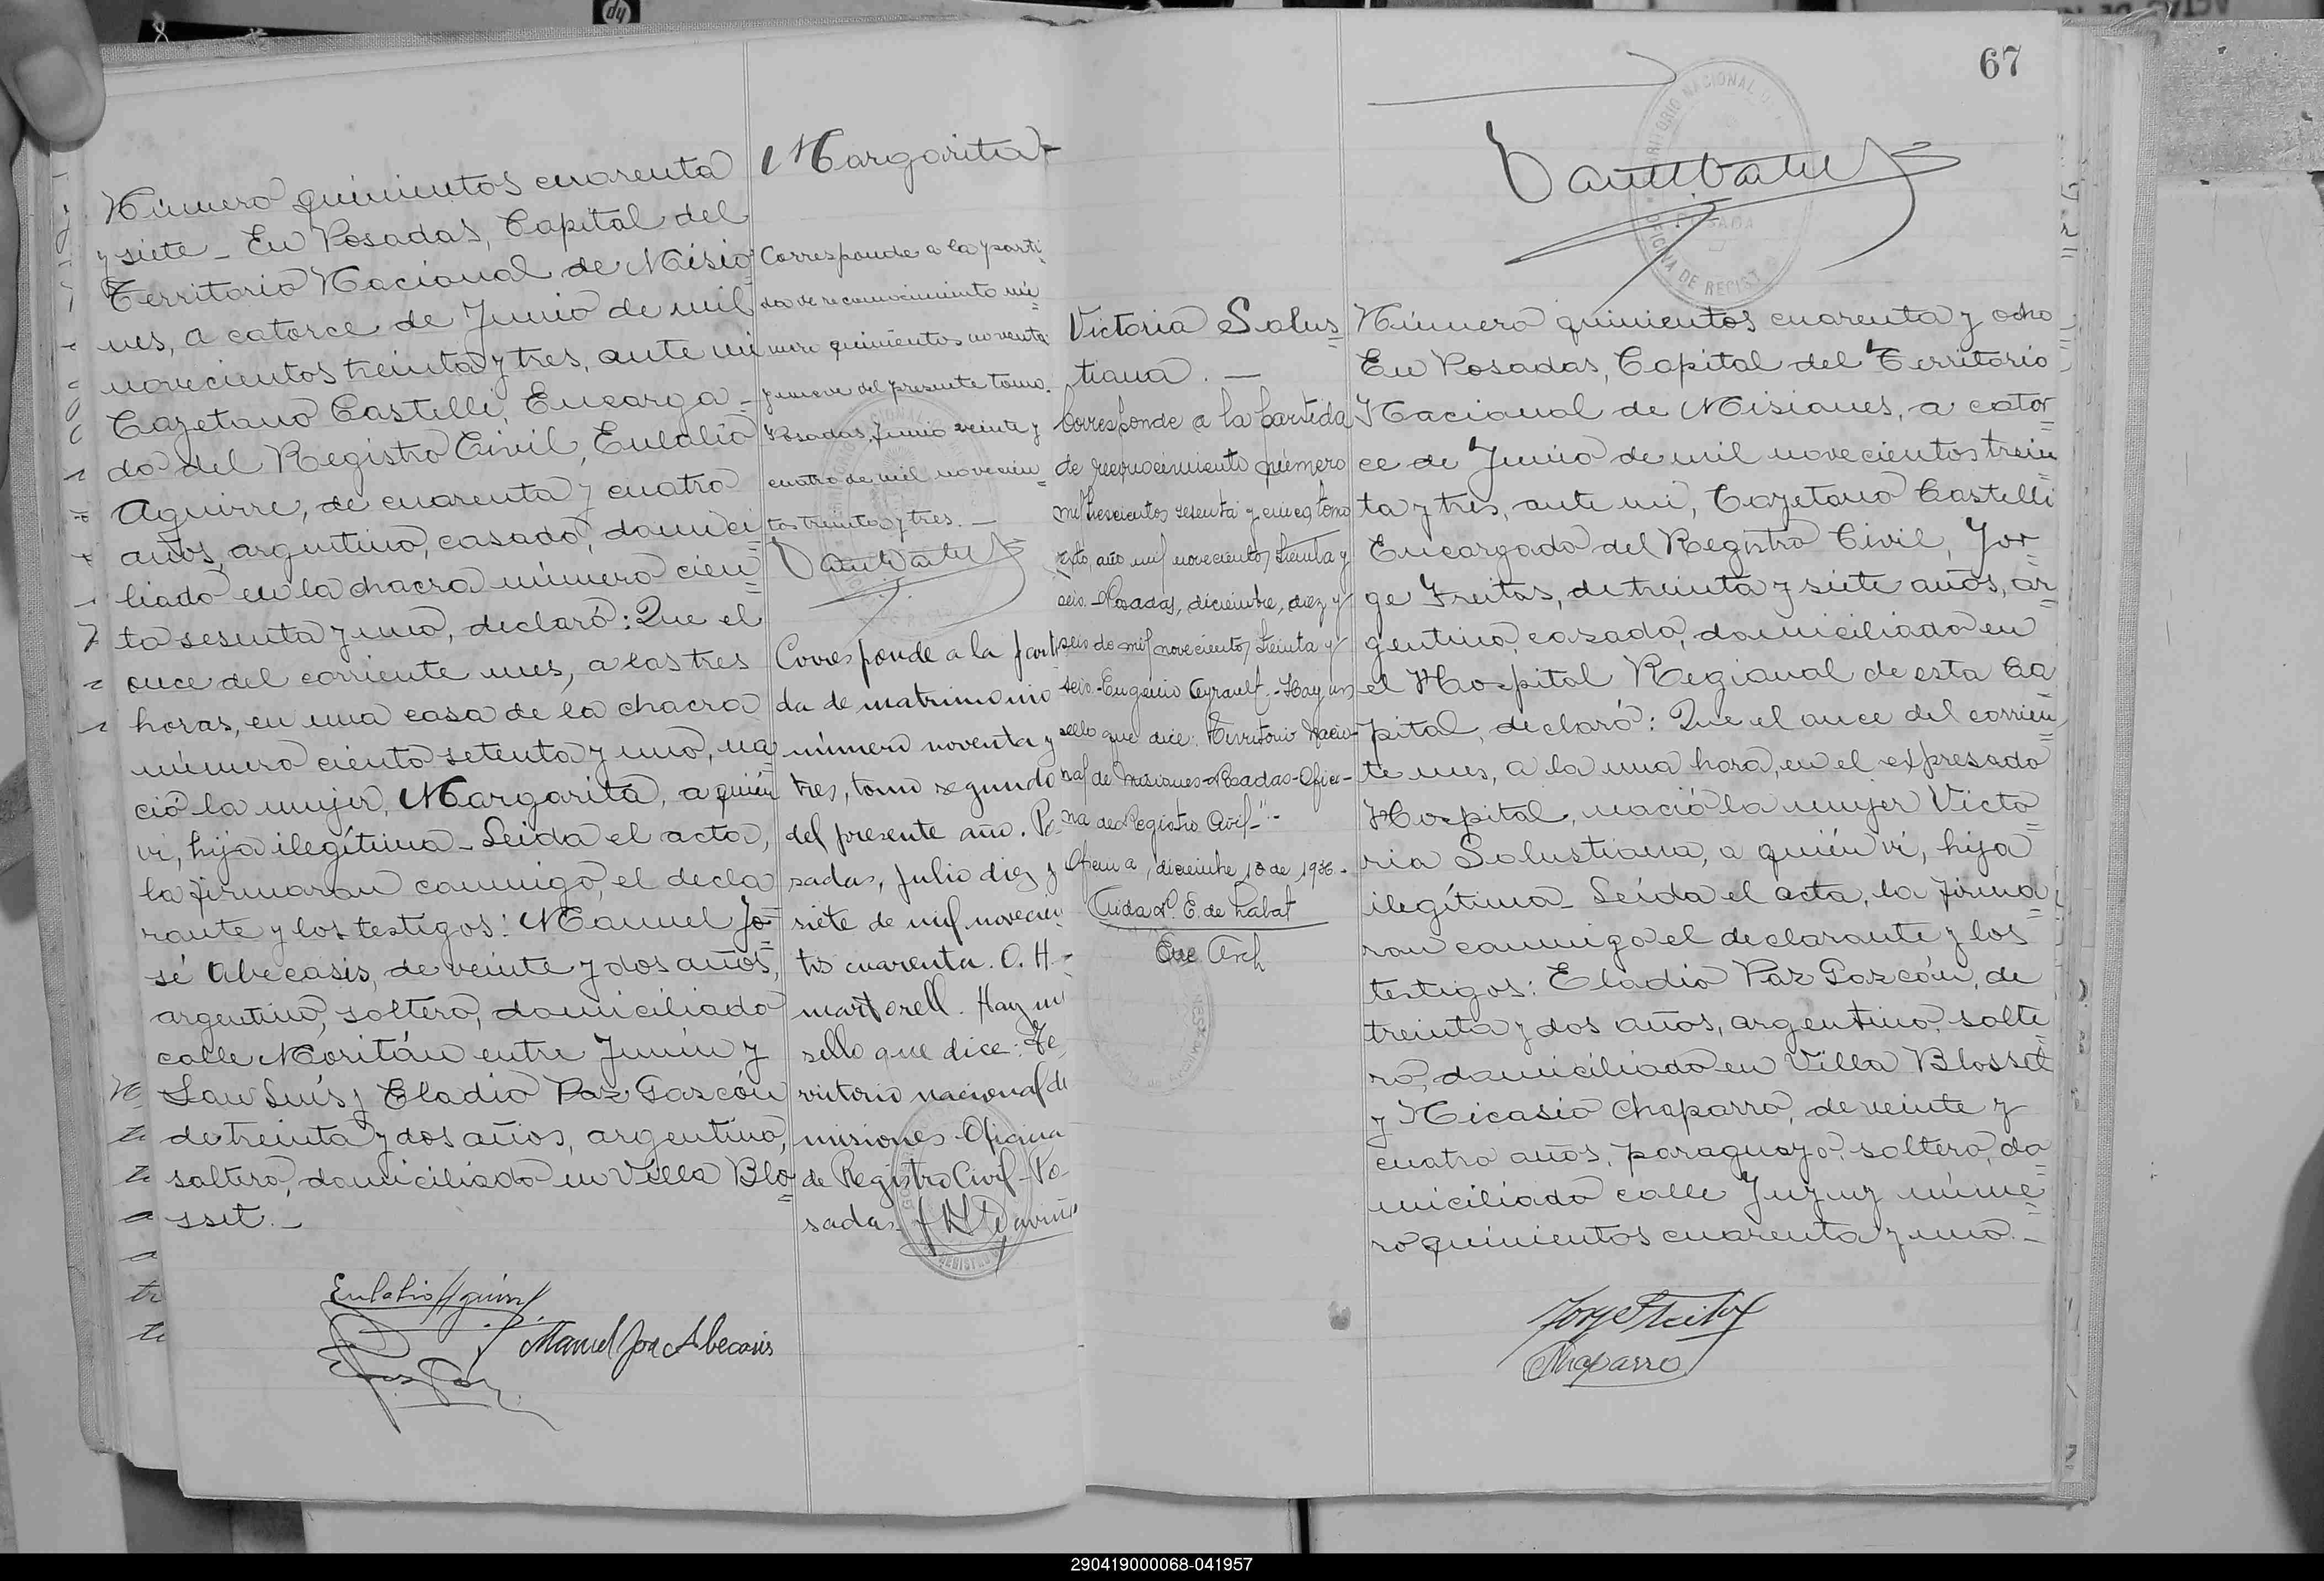 Número quinientos cuarenta
y siete _ En Posadas, Capital del
Territorio Nacional de Misio
nes, a catorce de Junio de mil
novecientos treinta y tres, ante mi
Cayetano Castelli, Encarga_
do del Registro Civil, Eulalio
Aguirre, de cuarenta y cuatro
años, argentino, casado, domici
liado en la chacra número cien=
to sesenta y uno, declaró: Que el
once del corriente mes, a las tres
horas, en una casa de la chacra
número ciento setenta y uno, na
ció la mujer, Margarita, a quién
vi, hija ilegítima _ Leida el acta,
la firmaran conmigo, el decla
rante y los testigos: Manuel Jo=
sé Abecasis, de veinte y dos años,
argentino, soltero, domiciliado
calle Moritán entre Junín y
San Luis y Eladio Paz Gascón
de treinta y dos años, argentino,
soltero, domiciliado en Villa Blo=
sset._
Eulalio Aguirre
Manuel José Abecasis
Margarita-
Corresponde a la parti=
da de reconocimiento nú=
mero quinientos noventa
y nueve del presente tomo.
Posadas, Junio veinte y
cuatro de mil novecien=
tos treinta y tres._
Corresponde a la parti
da de matrimonio
número noventa y
tres, tomo segundo
del presente año. Po
sadas, Julio diez y
siete de mil novecien
tos cuarenta. O. H.
Martorell. Hay un
sello que dice: Te
rritorio nacional de
misiones Oficina
de Registro Civil-Po-
sadas-
67
Victoria Salus=
tiana._
Corresponde a la partida
de reconocimiento número
mil trescientos sesenta y cinco, tomo
sexto, año mil novecientos treinta y
seis. Posadas, diciembre, diez y
seis de mil novecientos treinta y
seis.-Eugenio Ayrault.-Hay un
sello que dice: Territorio Nacio-
nal de Misiones-Posadas-Ofici-
na de Registro Civil-"-
Ofema, diciembre 18 de 1936.
Aida N. E. de Labat
Enc Arch
Número quinientos cuarenta y ocho
En Posadas, Capital del Territorio
Nacional de Misiones, a cator=
ce de Junio de mil novecientos trein
ta y tres, ante mi, Cayetano Castelli
Encargado del Registro Civil, Jor=
ge Freitas, de treinta y siete años, ar=
gentino, casado, domiciliado en
el Hospital Regional de esta Ca
pital, declaró: Que el once del corrien
te mes, a la una hora, en el expresado
Hospital, nació la mujer Victo=
ria Salustiana, a quién vi, hija
ilegítima_ Leída el acta, la firma=
ron conmigo el declarante y los
testigos: Eladio Paz Gascón, de
treinta y dos años, argentino, solte=
ro, domiciliado en Villa Blosset
y Nicasio Chaparro, de veinte y
cuatro años, paraguayo, soltero, do=
miciliado calle Jujuy núme=
ro quinientos cuarenta y uno._
Jorge Freitas
NChaparro
290419000068-041957